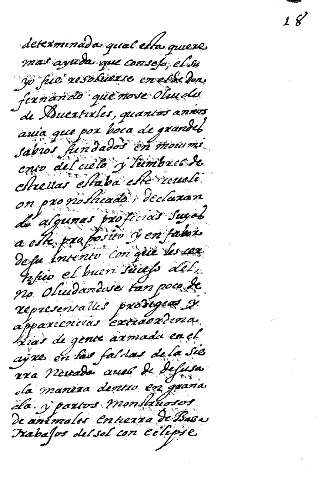 18
determinada qual esta quiere
mas ayuda que consejo, el su
yo fue resolverse en el de don
fernando que no se olvido
de advertirles, quantos annos
auia que por boca de grandes
sabios fundados en mouimi
ento del cielo y lumbres de
estrellas estaba este reueli
on pronosticado, declaran
do algunas profecias
a este proposito y en fabor
de su intento con que les cer
tifico el buen sucesso del,
no oluidandose tan poco de
representalles prodigios y
appariencias extraordina
rias de gente armada en el
ayre en las faldas de la sie
rra Neuada aues de desusa
da manera dentro en grana
da, y partos monstruosos
de animales en tierra de Baza
trabajos del sol con eclipse